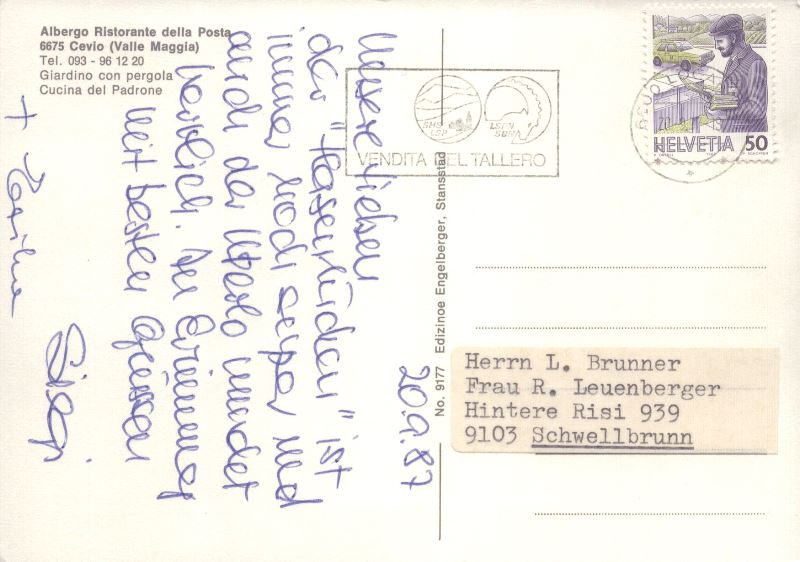 Albergo Ristorante della Posta
6675 Cevio (Valle Maggia)
Tel. 093 - 96 12 20
Giardino con pergola
Cucina del Padrone
SHS
LSP
LSPN
SBN
VENDITA DEL TALLERO
HELVETIA 50
No. 9177 Edizinoe Engelberger, Stansstad
20.9.87
Unsere Lieben
der "Hasenrücken" ist
immer noch super und
auch der Merlo mundet
herrlich. In Erinnerung
mit besten Grüssen
Sigi
+
Herrn L. Brunner
Frau R. Leuenberger
Hintere Risi 939
9103 Schwellbrunn